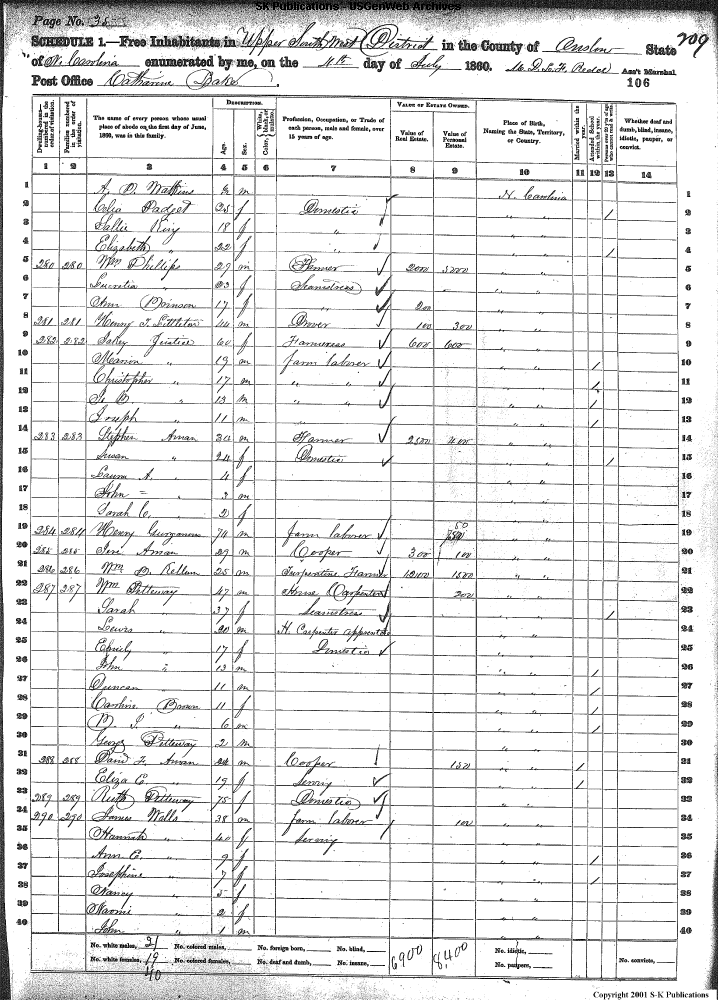 SK Publications - USGenWeb Archives
Page No. 38
SCHEDULE 1.—Free Inhabitants in Upper South West District in the County of Onslow State
of N. Carolina enumerated by me, on the 4th day of July 1860. Ass't Marshal
Post Office Catharine Lake 106
209
DESCRIPTION. VALUE OF ESTATE OWNED.
Dwelling-houses—numbered in the order of visitation. Families numbered in the order of visitation. The name of every person whose usual place of abode on the first day of June, 1860, was in this family. Age. Sex. Color, White, black, or mulatto. Profession, Occupation, or Trade of each person, male and female, over 15 years of age. Value of Real Estate. Value of Personal Estate. Place of Birth, Naming the State, Territory, or Country. Married within the year. Attended School within the year. Persons over 20 y'rs of age who cannot read & write. Whether deaf and dumb, blind, insane, idiotic, pauper, or convict.
1 2 3 4 5 6 7 8 9 10 11 12 13 14
1 A. D. Watkins m N. Carolina 1
2 Celia Padget 25 f Domestic " " / 2
3 Sallie King 18 f " " " 3
4 Elizabeth " 22 f " " " / 4
5 280 280 Wm Phillips 27 m Farmer 2000 " " 5
6 Lucretia " 23 f Seamstress " " 6
7 Ann 17 f " 200 " " 7
8 281 281 Henry F. Littleton 44 m 100 300 " " 8
9 282 282 Justice 60 f Farmeress 600 600 " " 9
10 Marion " 19 m farm laborer " " / 10
11 Christopher " 17 m " " " " / 11
12 " 13 m " " " " / 12
13 Joseph " 11 m " " / 13
14 283 283 Stephen Aman 30 m Farmer 2500 400 " " 14
15 Susan " 24 f Domestic " " / 15
16 Laura A. " 4 f " " 16
17 John " 3 m " " 17
18 Sarah C. " 2 f " " 18
19 284 284 Henry 74 m farm laborer 50 " " 19
20 285 285 Aman 29 m Cooper 300 100 " " 20
21 286 286 Wm B. Kellum 25 m Turpentine Farmer 1500 " " 21
22 287 287 Wm Pitteway 47 m House Carpenter 200 " " 22
23 Sarah " 37 f Seamstress " " / 23
24 Lewis " 20 m H. Carpenter apprentice " " 24
25 " 17 f Domestic " " 25
26 John " 13 m " " / 26
27 Duncan " 11 m " " / 27
28 Caroline Brown 11 f " " / 28
29 " 6 m " " / 29
30 George Pitteway 2 m " " 30
31 288 288 David F. Aman 24 m Cooper 150 " " / 31
32 Eliza E. " 19 f " " / 32
33 289 289 Ruth Pitteway 75 f Domestic " " 33
34 290 290 James Walls 38 m farm laborer 100 " " 34
35 Hannah " 40 f " " 35
36 Ann E. " 9 f " " / 36
37 Josephine " 7 f " " / 37
38 Nancy " 5 f " " 38
39 Naomi " 2 f " " 39
40 John " 1 m " " 40
No. white males, 21 No. colored males, No. foreign born, No. blind, 6900 8,400 No. idiotic,
No. white females, 19 No. colored females, No. deaf and dumb, No. insane, No. paupers, No. convicts,
40
Copyright 2001 S-K Publications